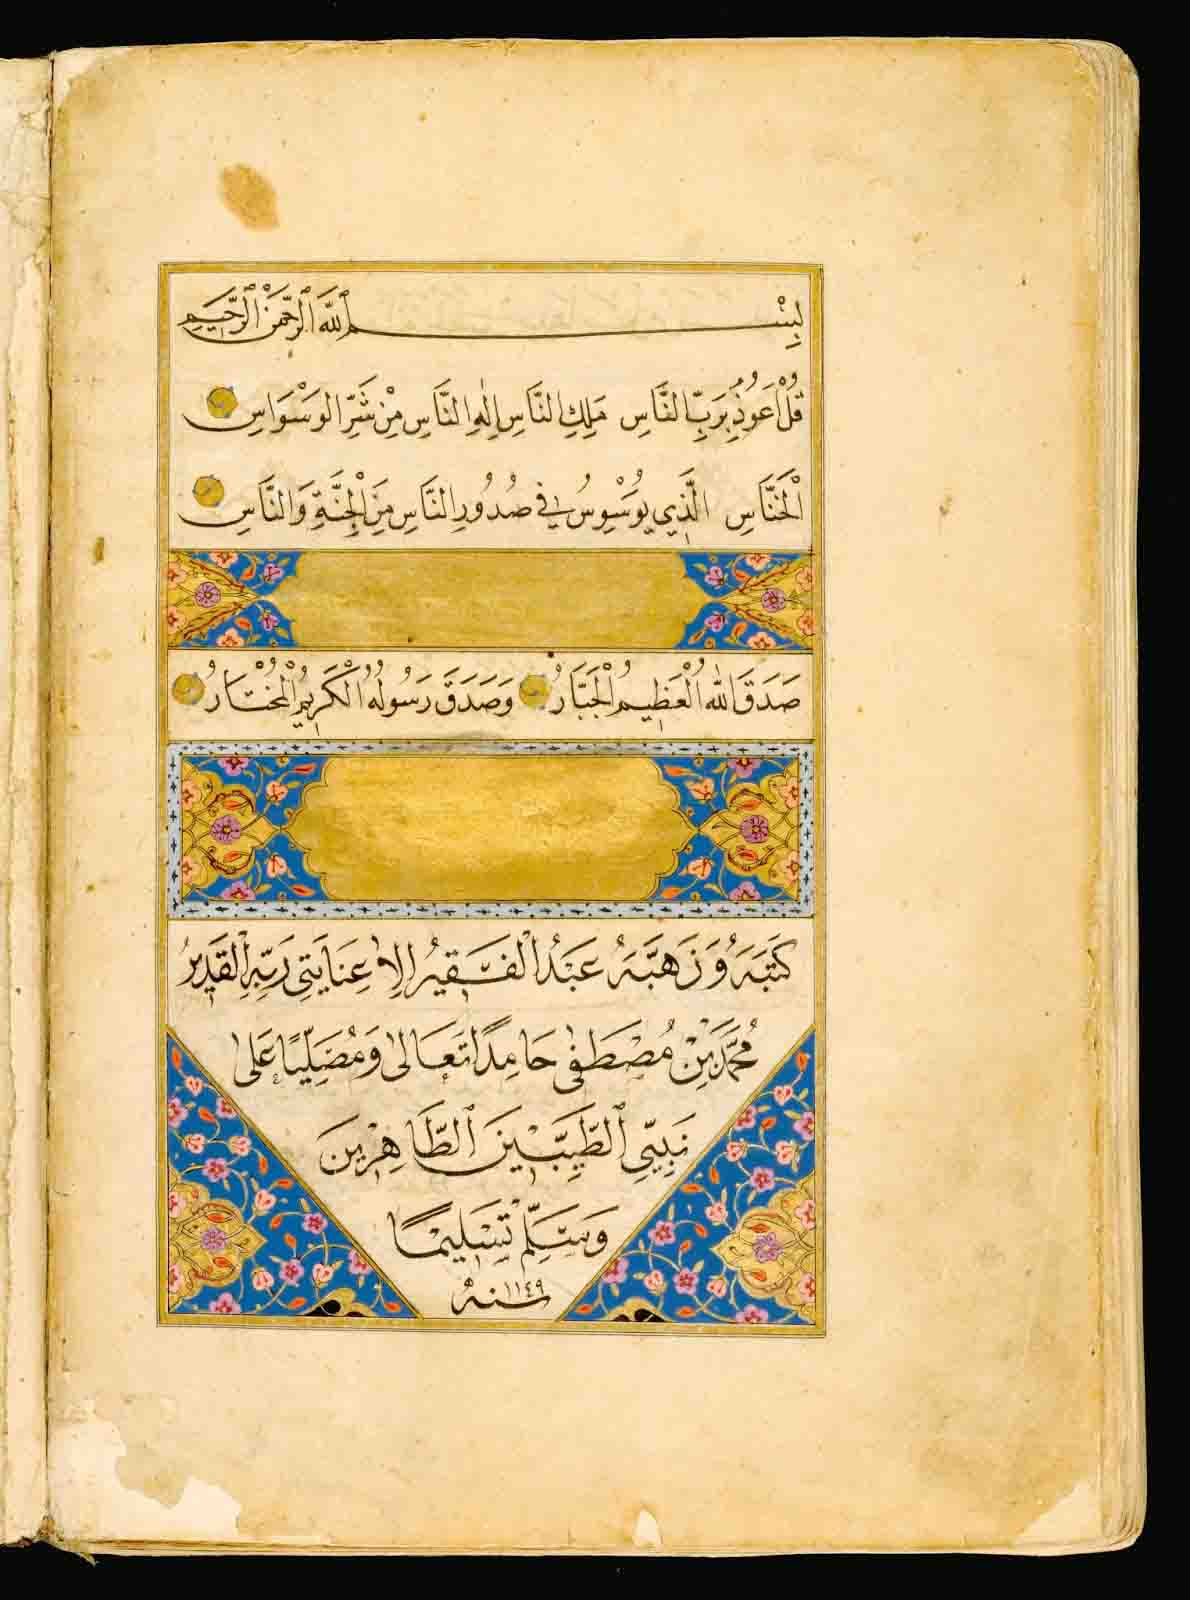 بِسْمِ اللّٰهِ الرَّحْمٰنِ الرَّحِيمِ
قُلْ اَعُوذُ بِرَبِّ النَّاسِ مَلِكِ النَّاسِ اِلٰهِ النَّاسِ مِنْ شَرِّ الْوَسْوَاسِ
الْخَنَّاسِ الَّذِي يُوَسْوِسُ فِي صُدُورِ النَّاسِ مِنَ الْجِنَّةِ وَالنَّاسِ
صَدَقَ اللّٰهُ الْعَظِيمُ الْجَبَّارُ وَصَدَقَ رَسُولُهُ الْكَرِيمُ الْمُخْتَارُ
كَتَبَهُ وَذَهَّبَهُ عَبْدُ الْفَقِيرُ اِلٰى عِنَايَتِي رَبِّهِ الْقَدِيرُ
مُحَمَّدْ بِنْ مُصْطَفٰى حَامِدًا تَعَالٰى وَمُصَلِّيًا عَلٰى
نَبِيِّي الطَّيِّبِينَ الطَّاهِرِينَ
وَسَلِّمْ تَسْلِيمًا
سنه ١١٤٩